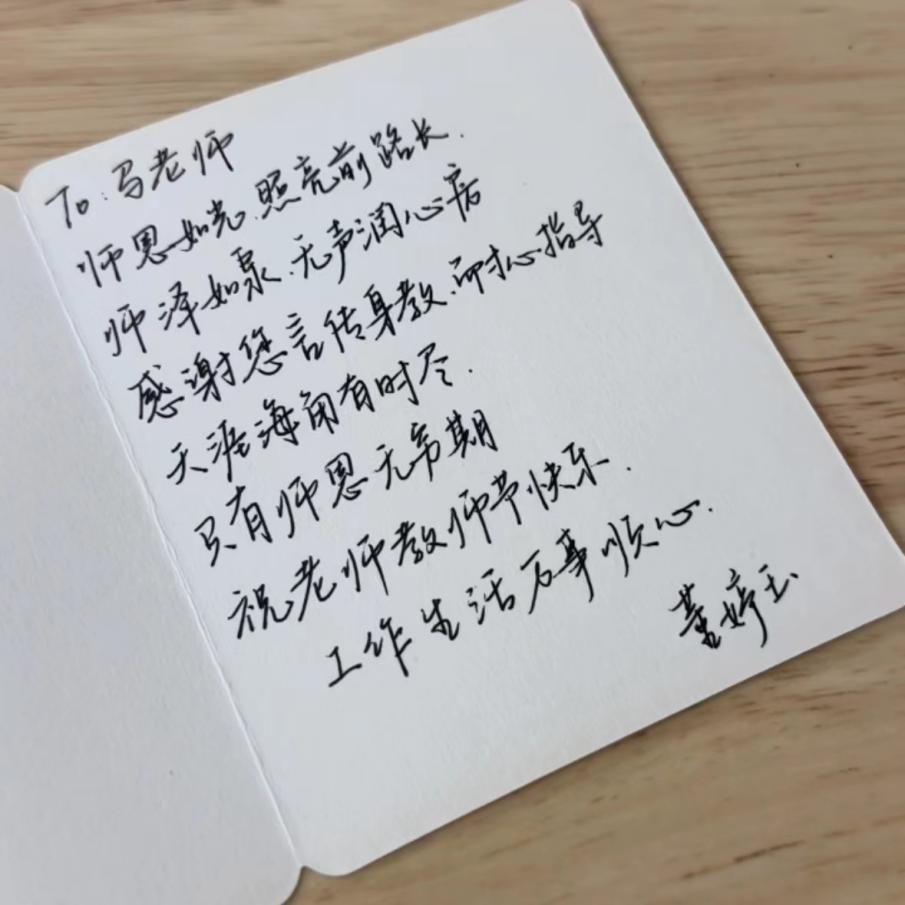 To:马老师
师恩如光.照亮前路长.
师泽如泉.无声润心房
感谢您言传身教.耐心指导
天涯海角有时尽.
只有师恩无穷期
祝老师教师节快乐.
工作生活万事顺心.
董婷玉